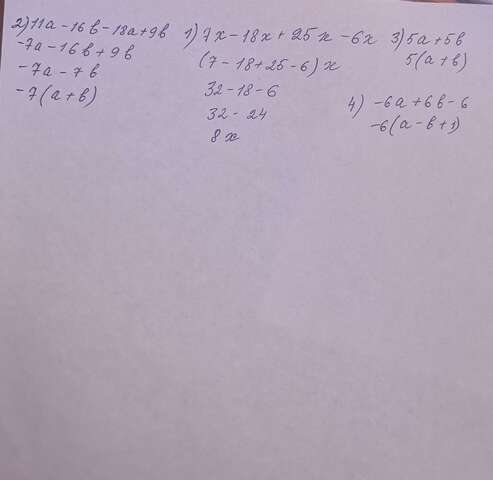 2) 11a - 16b - 18a + 9b
-7a - 16b + 9b
-7a - 7b
-7(a + b)
1) 7x - 18x + 25x - 6x
(7 - 18 + 25 - 6) x
32 - 18 - 6
32 - 24
8x
3) 5a + 5b
5(a + b)
4) -6a + 6b - 6
-6(a - b + 1)